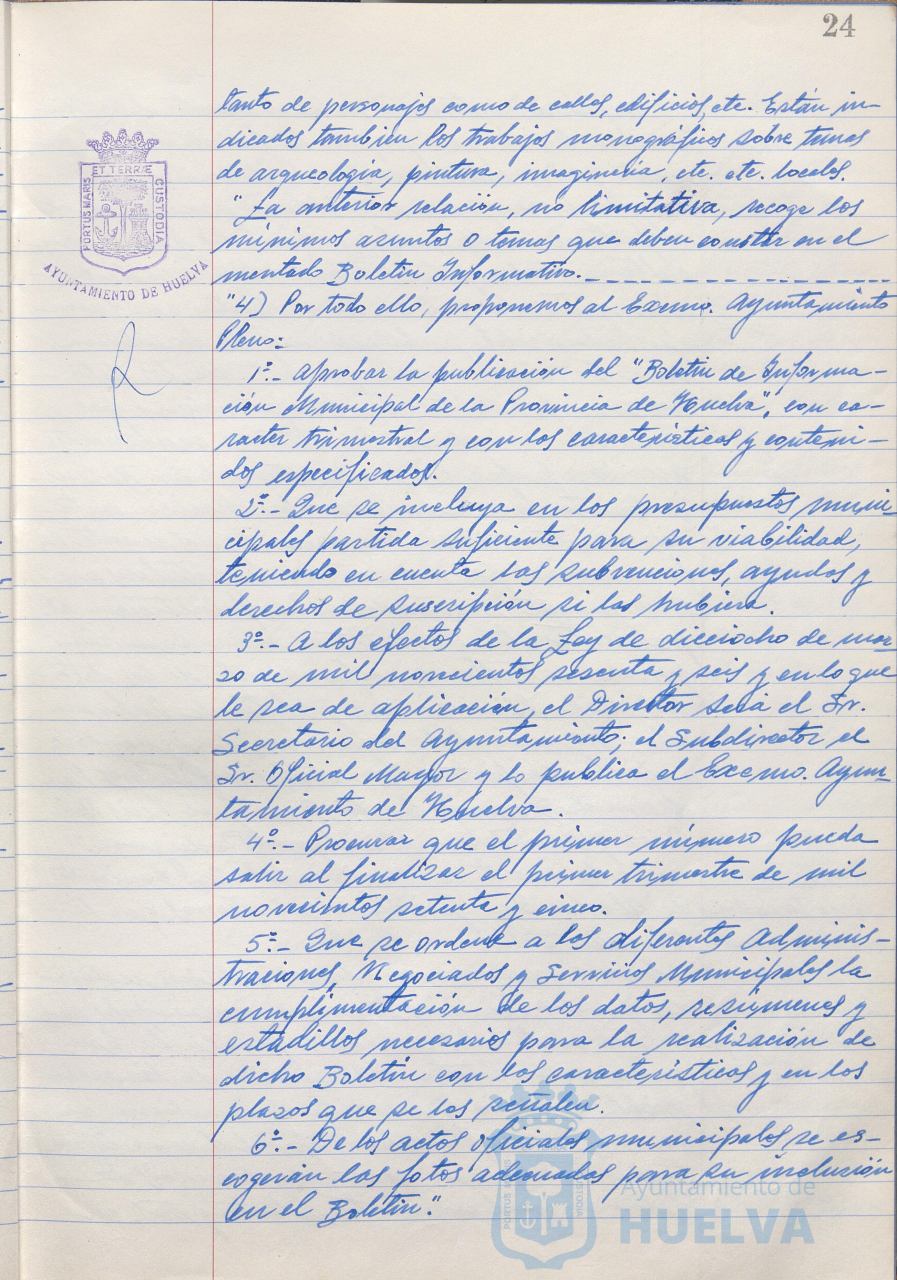 24
tanto de personajes como de calles, edificios, etc. Están in-
dicados también los trabajos monográficos sobre temas
de arqueología, pintura, imaginería, etc. etc. locales.
"La anterior relación, no limitativa, recoge los
mínimos asuntos o temas que deben constar en el
mentado Boletín Informativo.
"4) Por todo ello, proponemos al Excmo. Ayuntamiento
Pleno:
1º.- Aprobar la publicación del "Boletín de Informa-
ción Municipal de la Provincia de Huelva", con ca-
racter trimestral y con las características y conteni-
dos especificados.
2º.- Que se incluya en los presupuestos muni-
cipales partida suficiente para su viabilidad,
teniendo en cuenta las subvenciones, ayudas y
derechos de suscripción si los hubiera.
3º.- A los efectos de la Ley de dieciocho de mar-
zo de mil novecientos sesenta y seis y en lo que
le sea de aplicación, el Director será el Sr.
Secretario del Ayuntamiento; el Subdirector el
Sr. Oficial Mayor y lo publica el Excmo. Ayun-
tamiento de Huelva.
4º.- Procurar que el primer número pueda
salir al finalizar el primer trimestre de mil
novecientos setenta y cinco.
5º.- Que se ordene a los diferentes Adminis-
traciones, Negociados y Servicios Municipales la
cumplimentación de los datos, resúmenes y
estadillos necesarios para la realización de
dicho Boletín con las características y en los
plazos que se les señalen.
6º.- De los actos oficiales municipales se es-
cogerán las fotos adecuadas para su inclusión
en el Boletín".
PORTUS MARIS ET TERRÆ CUSTODIA
AYUNTAMIENTO DE HUELVA
PORTUS CUSTODIA
Ayuntamiento de
HUELVA